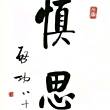 慎思
啓功八十